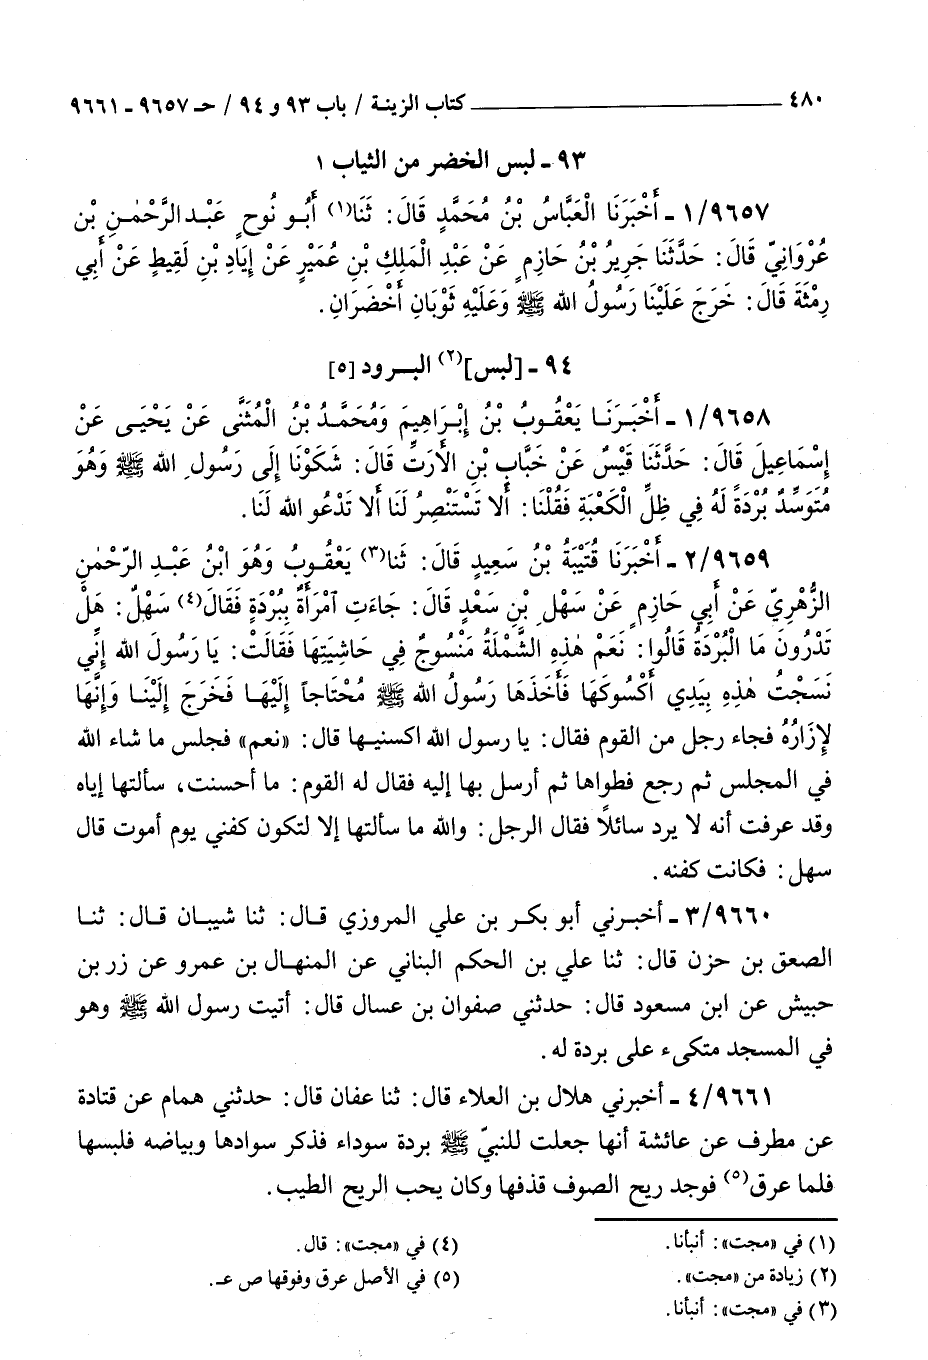 ٤٨٠ كتاب الزينة / باب ٩٣ و ٩٤ / حـ ٩٦٥٧ ـ ٩٦٦١
٩٣ ـ لبس الخضر من الثياب ١
١/٩٦٥٧ ـ أَخْبَرَنَا الْعَبَّاسُ بْنُ مُحَمَّدٍ قَالَ: ثَنَا(١) أَبُو نُوحٍ عَبْدِ الرَّحْمٰنِ بْنِ
غُرْوَانِيِّ قَالَ: حَدَّثَنَا جَرِيرُ بْنُ حَازِمٍ عَنْ عَبْدِ الْمَلِكِ بْنِ عُمَيْرٍ عَنْ إِيَادِ بْنِ لَقِيطٍ عَنْ أَبِي
رِمْثَةَ قَالَ: خَرَجَ عَلَيْنَا رَسُولُ الله ﷺ وَعَلَيْهِ ثَوْبَانِ أَخْضَرَانِ.
٩٤ ـ [لبس](٢) البرود [٥]
١/٩٦٥٨ ـ أَخْبَرَنَا يَعْقُوبُ بْنُ إِبْرَاهِيمَ وَمُحَمَّدُ بْنُ الْمُثَنَّى عَنْ يَحْيَى عَنْ
إِسْمَاعِيلَ قَالَ: حَدَّثَنَا قَيْسُ عَنْ خَبَّابِ بْنِ الأَرَتِّ قَالَ: شَكَوْنَا إِلَى رَسُولِ الله ﷺ وَهُوَ
مُتَوَسِّدٌ بُرْدَةً لَهُ فِي ظِلِّ الْكَعْبَةِ فَقُلْنَا: أَلا تَسْتَنْصِرُ لَنَا أَلا تَدْعُو الله لَنَا.
٢/٩٦٥٩ ـ أَخْبَرَنَا قُتَيْبَةُ بْنُ سَعِيدٍ قَالَ: ثَنا(٣) يَعْقُوبُ وَهُوَ ابْنُ عَبْدِ الرَّحْمٰنِ
الزُّهْرِيِّ عَنْ أَبِي حَازِمٍ عَنْ سَهْلِ بْنِ سَعْدٍ قَالَ: جَاءَتِ ٱمْرَأَةٌ بِبُرْدَةٍ فَقَالَ(٤) سَهْلٌ: هَلْ
تَدْرُونَ مَا الْبُرْدَةُ قَالُوا: نَعَمْ هٰذِهِ الشَّمْلَةُ مَنْسُوجٌ فِي حَاشِيَتِهَا فَقَالَتْ: يَا رَسُولَ الله إِنِّي
نَسَجْتُ هٰذِهِ بِيَدِي أَكْسُوكَهَا فَأَخَذَهَا رَسُولُ الله ﷺ مُحْتَاجاً إِلَيْهَا فَخَرَجَ إِلَيْنَا وَإِنَّهَا
لإِزَارُهُ فجاء رجل من القوم فقال: يا رسول الله اكسنيها قال: «نعم» فجلس ما شاء الله
في المجلس ثم رجع فطواها ثم أرسل بها إليه فقال له القوم: ما أحسنت، سألتها إياه
وقد عرفت أنه لا يرد سائلًا فقال الرجل: والله ما سألتها إلا لتكون كفني يوم أموت قال
سهل: فكانت كفنه.
٣/٩٦٦٠ ـ أخبرني أبو بكر بن علي المروزي قال: ثنا شيبان قال: ثنا
الصعق بن حزن قال: ثنا علي بن الحكم البناني عن المنهال بن عمرو عن زر بن
حبيش عن ابن مسعود قال: حدثني صفوان بن عسال قال: أتيت رسول الله ﷺ وهو
في المسجد متكىء على بردة له.
٤/٩٦٦١ ـ أخبرني هلال بن العلاء قال: ثنا عفان قال: حدثني همام عن قتادة
عن مطرف عن عائشة أنها جعلت للنبيّ ﷺ بردة سوداء فذكر سوادها وبياضه فلبسها
فلما عرق(٥) فوجد ريح الصوف قذفها وكان يحب الريح الطيب.
(١) في «مجت»: أنبأنا.
(٢) زيادة من «مجت».
(٣) في «مجت»: أنبأنا.
(٤) في «مجت»: قال.
(٥) في الأصل عرق وفوقها ص عـ.